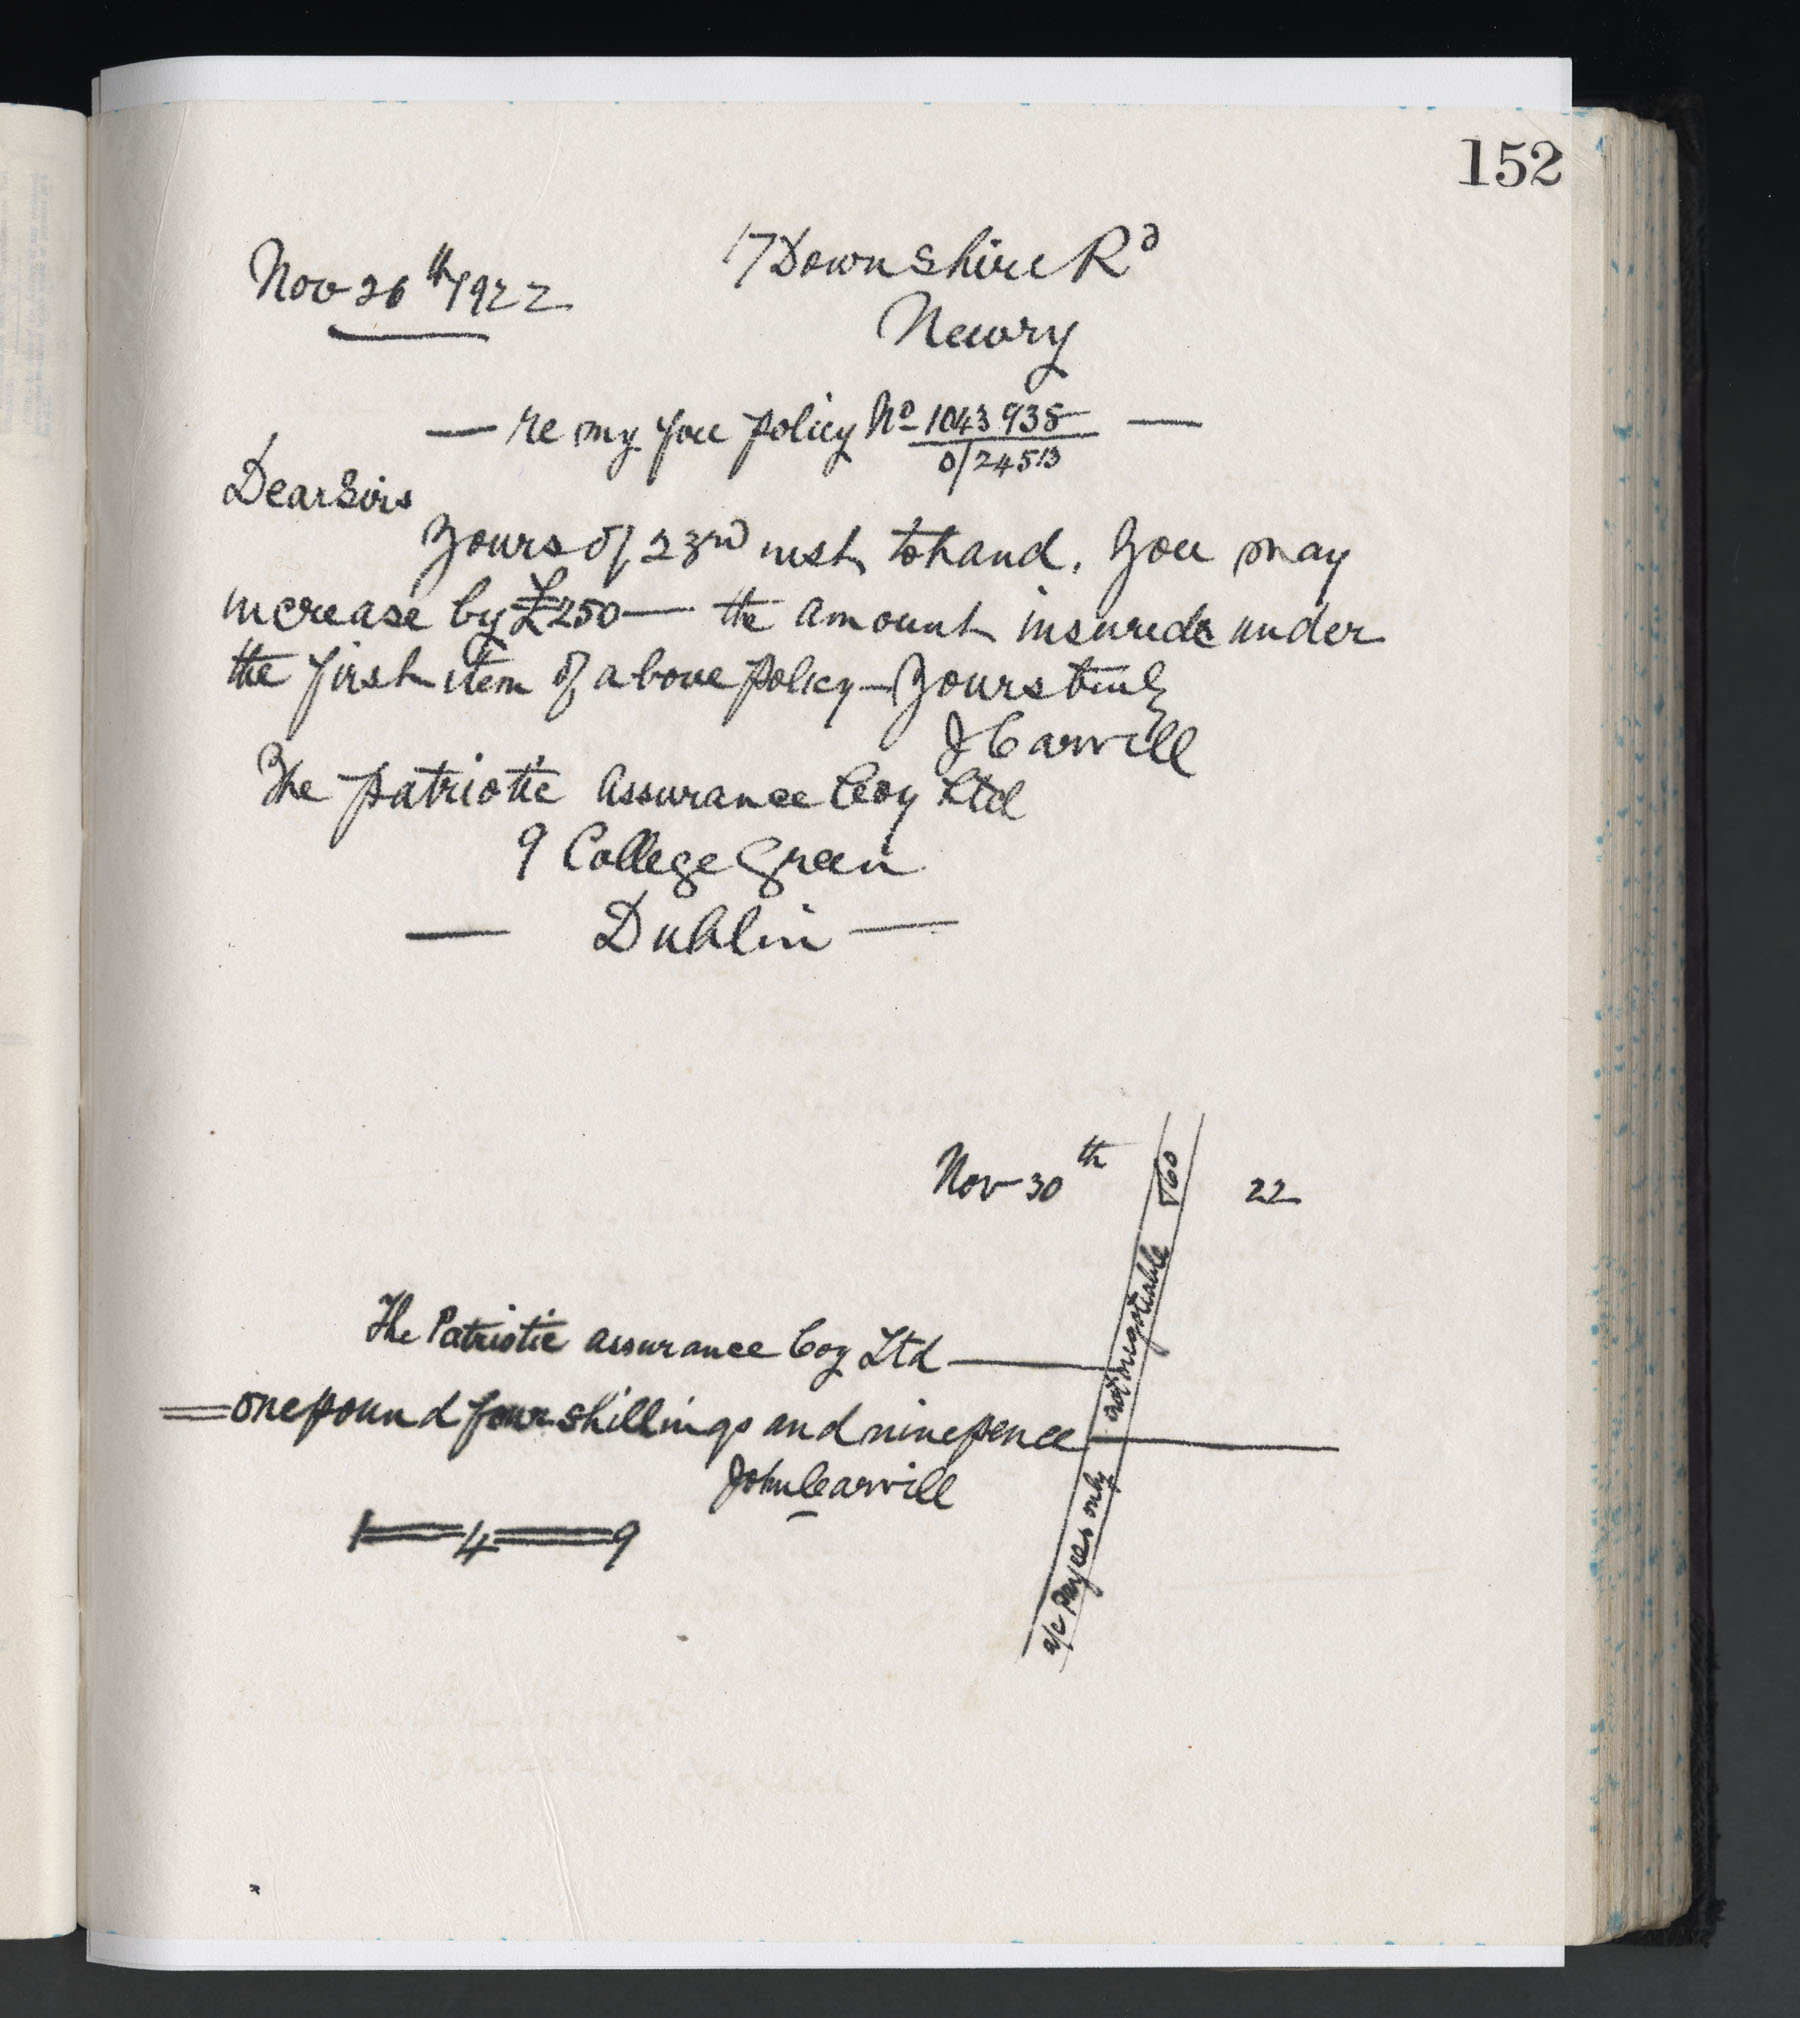 152
17 Downshire Rd
Nov 26th/1922
Newry
— re my policy No 1043938 —
0/24513
Dear Sirs
Yours of 23rd inst to hand. You may
increase by £250— the amount insured under
the first item of above policy — Yours truly
J Carvill
The Patriotic Assurance Coy Ltd
9 College Green
— Dublin —
Nov 30th 22
The Patriotic Assurance Coy Ltd —
= one pound four shillings and nine pence —
John Carvill
1 = 4 = 9
a/c payees only not negotiable &Co